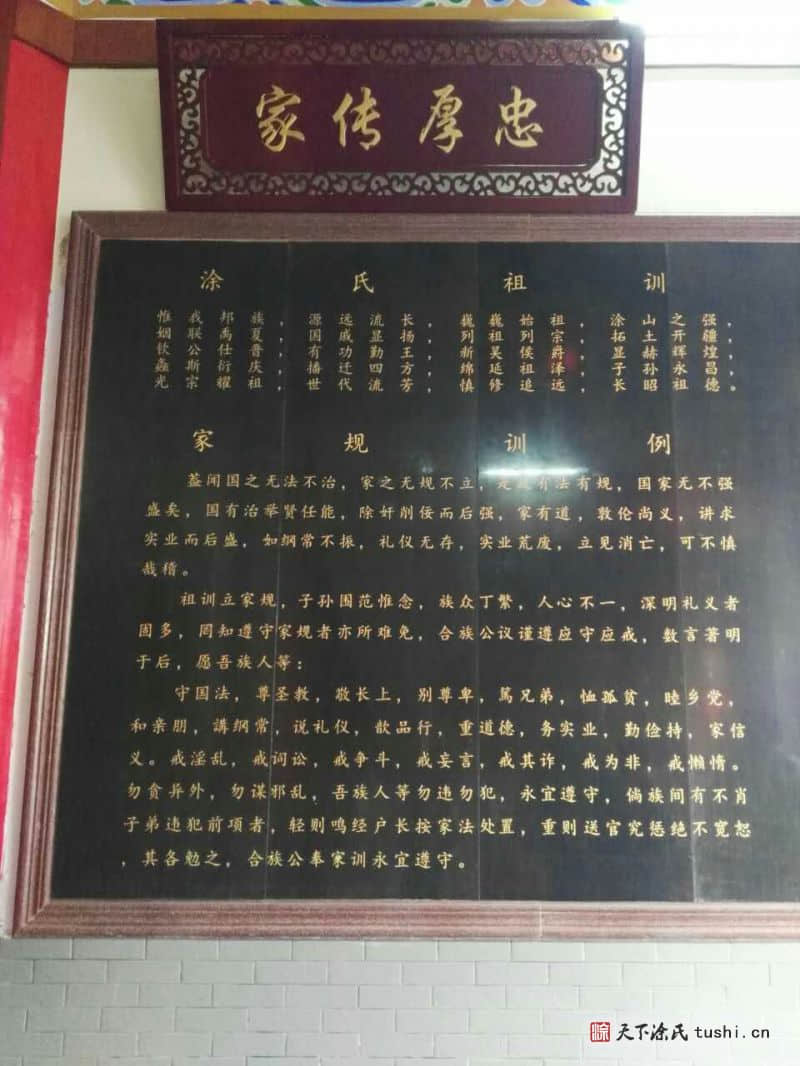 忠厚传家
涂氏祖训
惟我邦族，源远流长，巍巍始祖，涂山之强，
姻联禹夏，国戚显扬，列祖列宗，拓土开疆，
钦公仕晋，有功勤王，新吴侯爵，显赫辉煌，
螽斯衍庆，播迁四方，绵延祖泽，子孙永昌，
光宗耀祖，世代流芳，慎修追远，长昭祖德。
家规训例
盖闻国之无法不治，家之无规不立，是且有法有规，国家无不强
盛矣，国有治举贤任能，除奸削佞而后强，家有道，敦伦尚义，讲求
实业而后盛，如纲常不振，礼仪无存，实业荒废，立见消亡，可不慎
哉稽。
祖训立家规，子孙围范惟念，族众丁繁，人心不一，深明礼义者
固多，罔知遵守家规者亦所难免，合族公议谨遵应守应戒，数言著明
于后，愿吾族人等：
守国法，尊圣教，敬长上，别尊卑，篤兄弟，恤孤贫，睦乡党，
和亲朋，講纲常，说礼仪，歆品行，重道德，务实业，勤俭持，家信
义。戒淫乱，戒词讼，戒争斗，戒妄言，戒其诈，戒为非，戒懒惰。
勿贪异外，勿谋邪乱，吾族人等勿违勿犯，永宜遵守，倘族间有不肖
子弟违犯前项者，轻则鸣经户长按家法处置，重则送官究惩绝不宽恕
，其各勉之，合族公奉家训永宜遵守。
天下涂氏tushi.cn